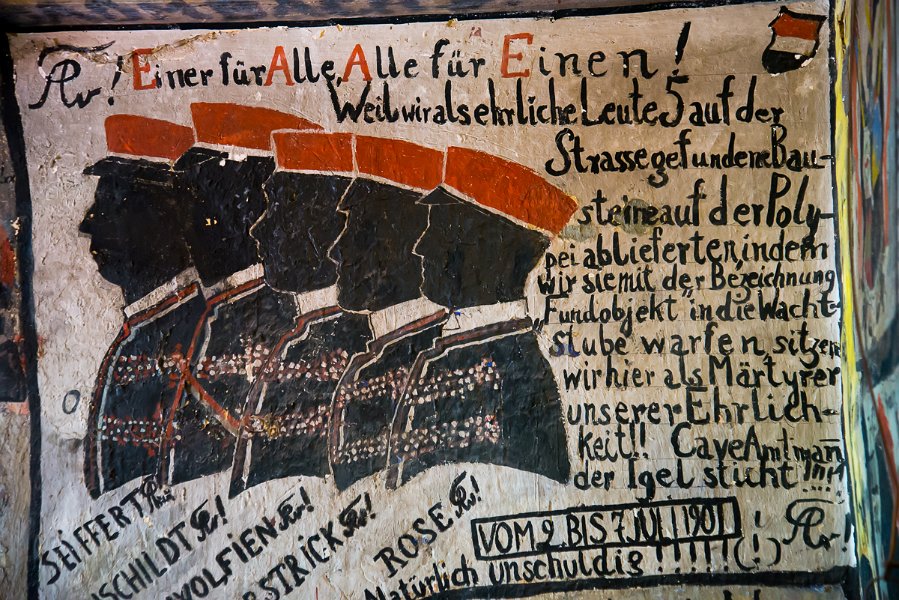 Einer für Alle, Alle für Einen!
Weil wir als ehrliche Leute 5 auf der
Strasse gefundene Bau-
steine auf der Poly-
pei ablieferten, indem
wir sie mit der Bezeichnung
„Fundobjekt" in die Wacht-
stube warfen, sitzen
wir hier als Märtyrer
unserer Ehrlich-
keit!! Cave Amtmañ
der Igel sticht!!!!
SEIFFERT
SCHILDT
WOLFIEN
STRICK
ROSE
VOM 2. BIS 7. JULI 1901
Natürlich unschuldig !!!!!!(!)